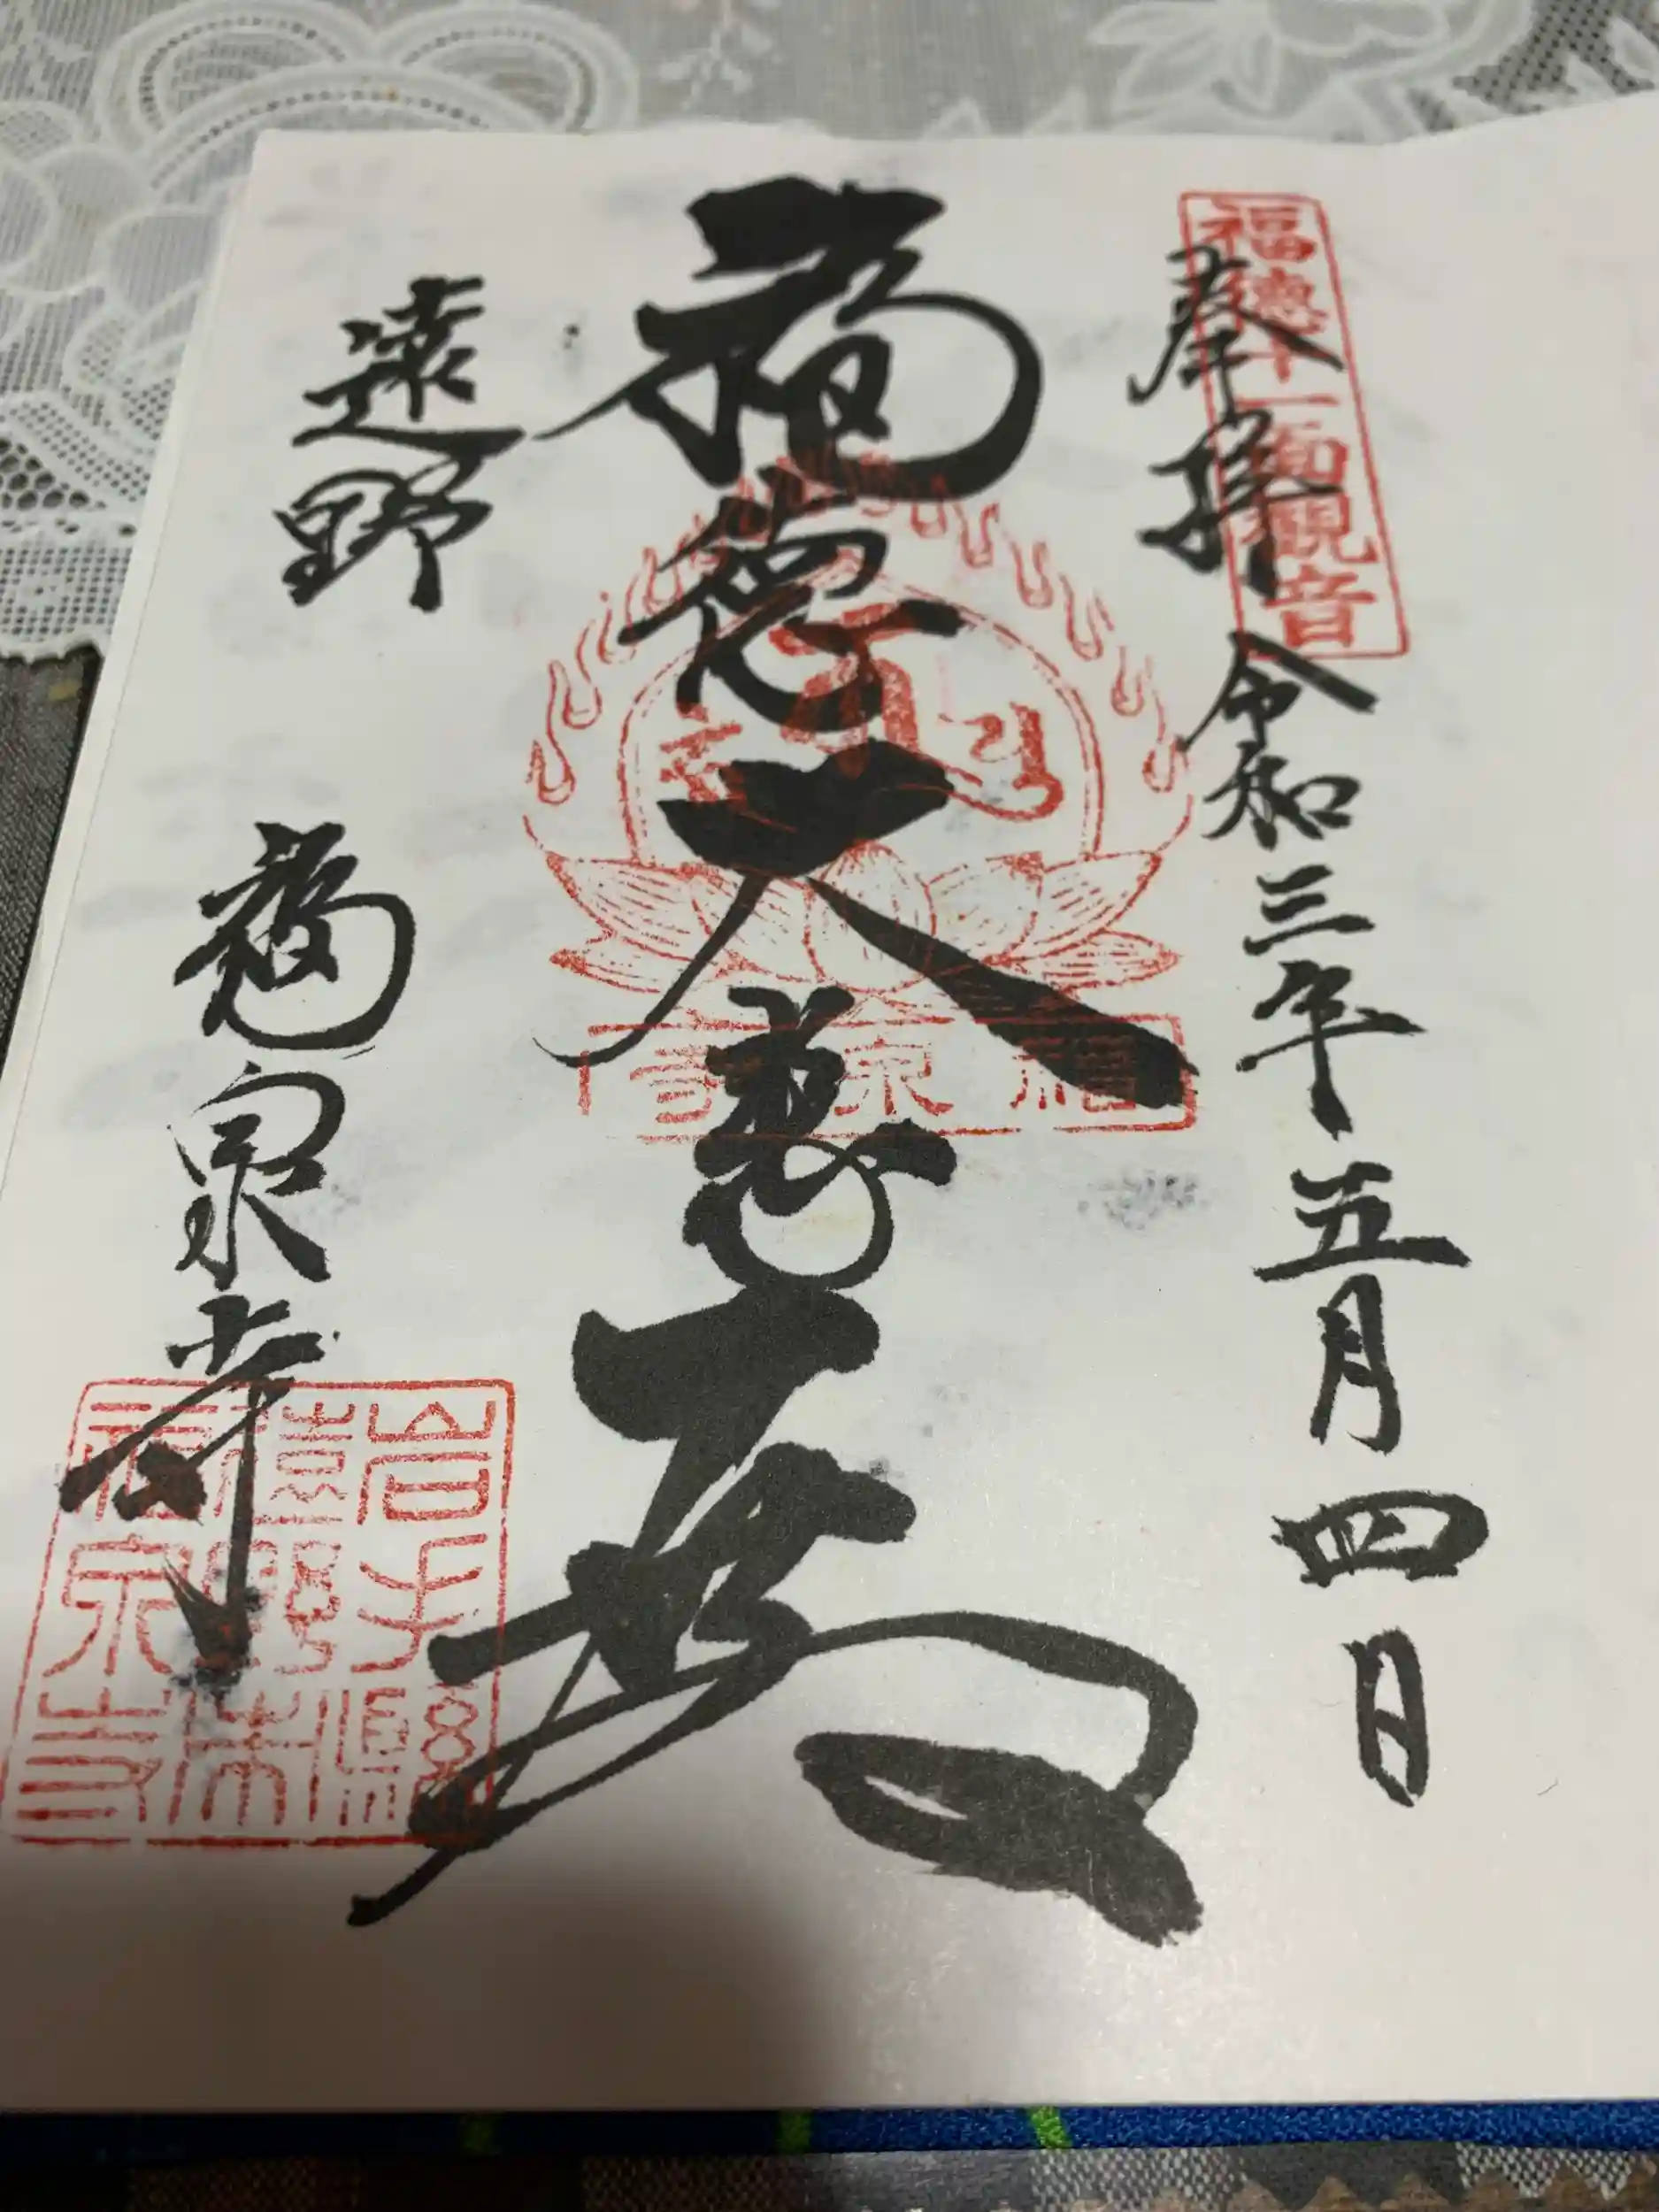 福徳十一面観音
奉拝 令和三年五月四日
福徳大悲殿
福泉寺
遠野 福泉寺
岩手縣
遠野
福泉寺